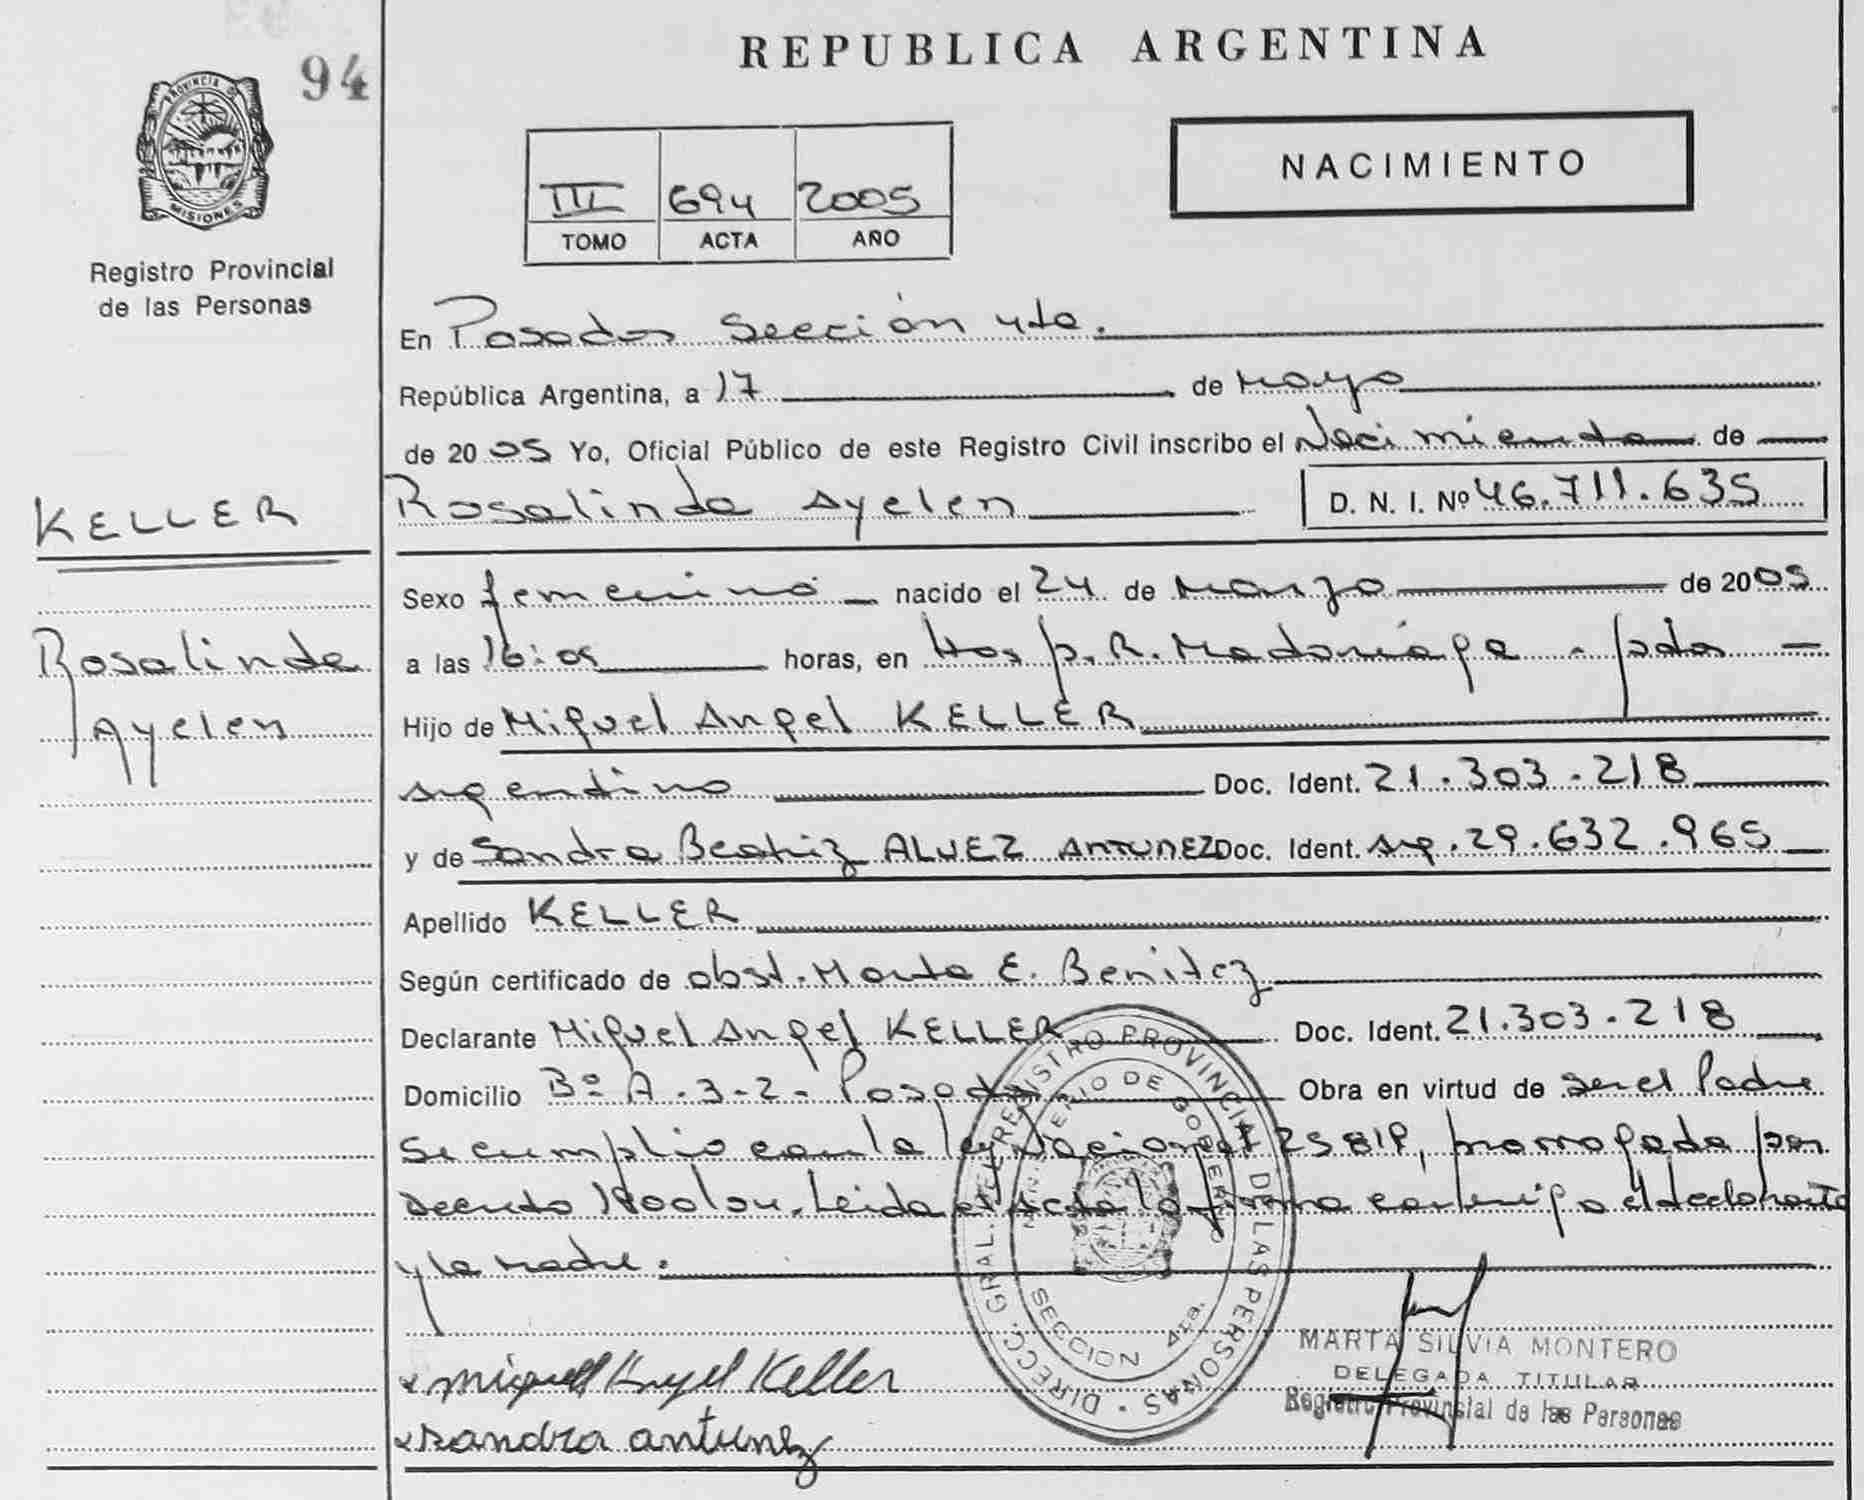 94
REPUBLICA ARGENTINA
PROVINCIA DE
MISIONES
Registro Provincial
de las Personas
NACIMIENTO
III 694 2005
TOMO ACTA AÑO
En Posadas Sección 4ta.
República Argentina, a 17 de Mayo
de 2005 Yo, Oficial Público de este Registro Civil inscribo el Nacimiento de
KELLER
Rosalinda Ayelen D. N. I. Nº 46.711.635
Sexo femenino nacido el 24 de Marzo de 2005
Rosalinda
a las 16:05 horas, en Hosp. R. Madariaga - pdas -
Ayelen
Hijo de Miguel Angel KELLER
argentino Doc. Ident. 21.303.218
y de Sandra Beatriz ALVEZ ANTUNEZ Doc. Ident. arg. 29.632.965
Apellido KELLER
Según certificado de obst. Marta E. Benitez
Declarante Miguel Angel KELLER Doc. Ident. 21.303.218
Domicilio Bº A-3-2- Posadas Obra en virtud de ser el Padre
se cumplio con la ley Nacional 25819, prorrogada por
Decreto 1800/04. Leida el Acta la firma conmigo el declarante
y la madre.
DIRECC. GRAL. DEL REGISTRO PROVINCIAL DE LAS PERSONAS
MINISTERIO DE GOBIERNO
SECCION 4ta.
MARTA SILVIA MONTERO
DELEGADA TITULAR
Registro Provincial de las Personas
x Miguel Angel Keller
x sandra antunez